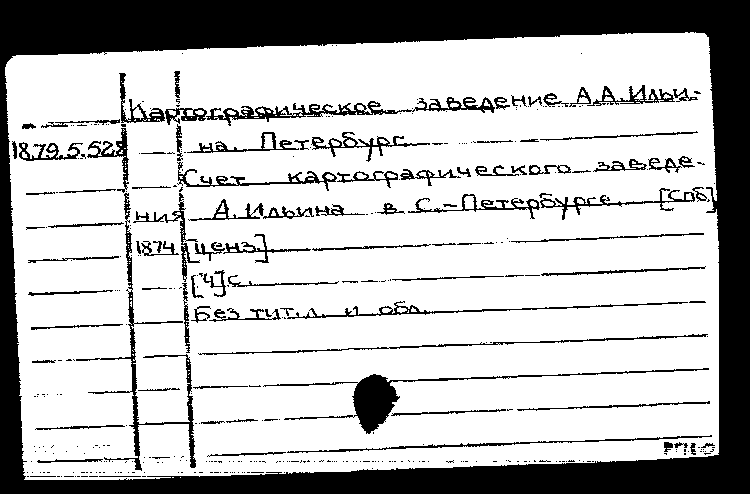 Картографическое заведение А.А. Ильи-
18.79.5.528 на. Петербург.
Счет картографического заведе-
ния А. Ильина в С.-Петербурге. [Спб]
1874 [ценз].
[4]с.
Без тит.л. и обл.